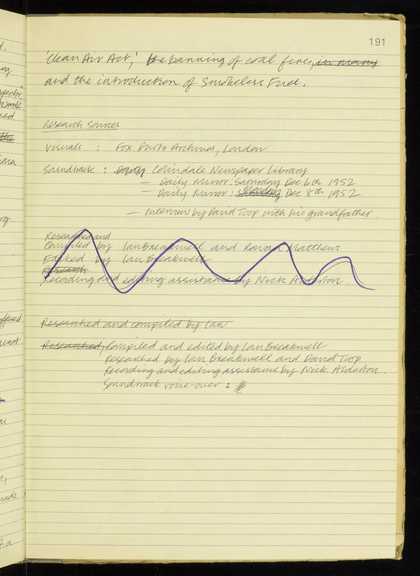 191
'Clean Air Act,' the banning of coal fires, in many
and the introduction of Smokeless Fuel.
Research Sources
Visuals : Fox Photo Archives, London
Soundtrack : Colindale Newspaper Library
— Daily Mirror: Saturday Dec 6th 1952
— Daily Mirror: Dec 8th 1952
— Interview by David Toop with his grandfather
Researched and
Compiled by Ian Breakwell and
Edited by Ian Breakwell
Research
Recording and editing assistance by Nick Alderton
Researched and compiled by Ian
Researched, Compiled and edited by Ian Breakwell
Researched by Ian Breakwell and David Toop
Recording and editing assistance by Nick Alderton.
Soundtrack voice-over :